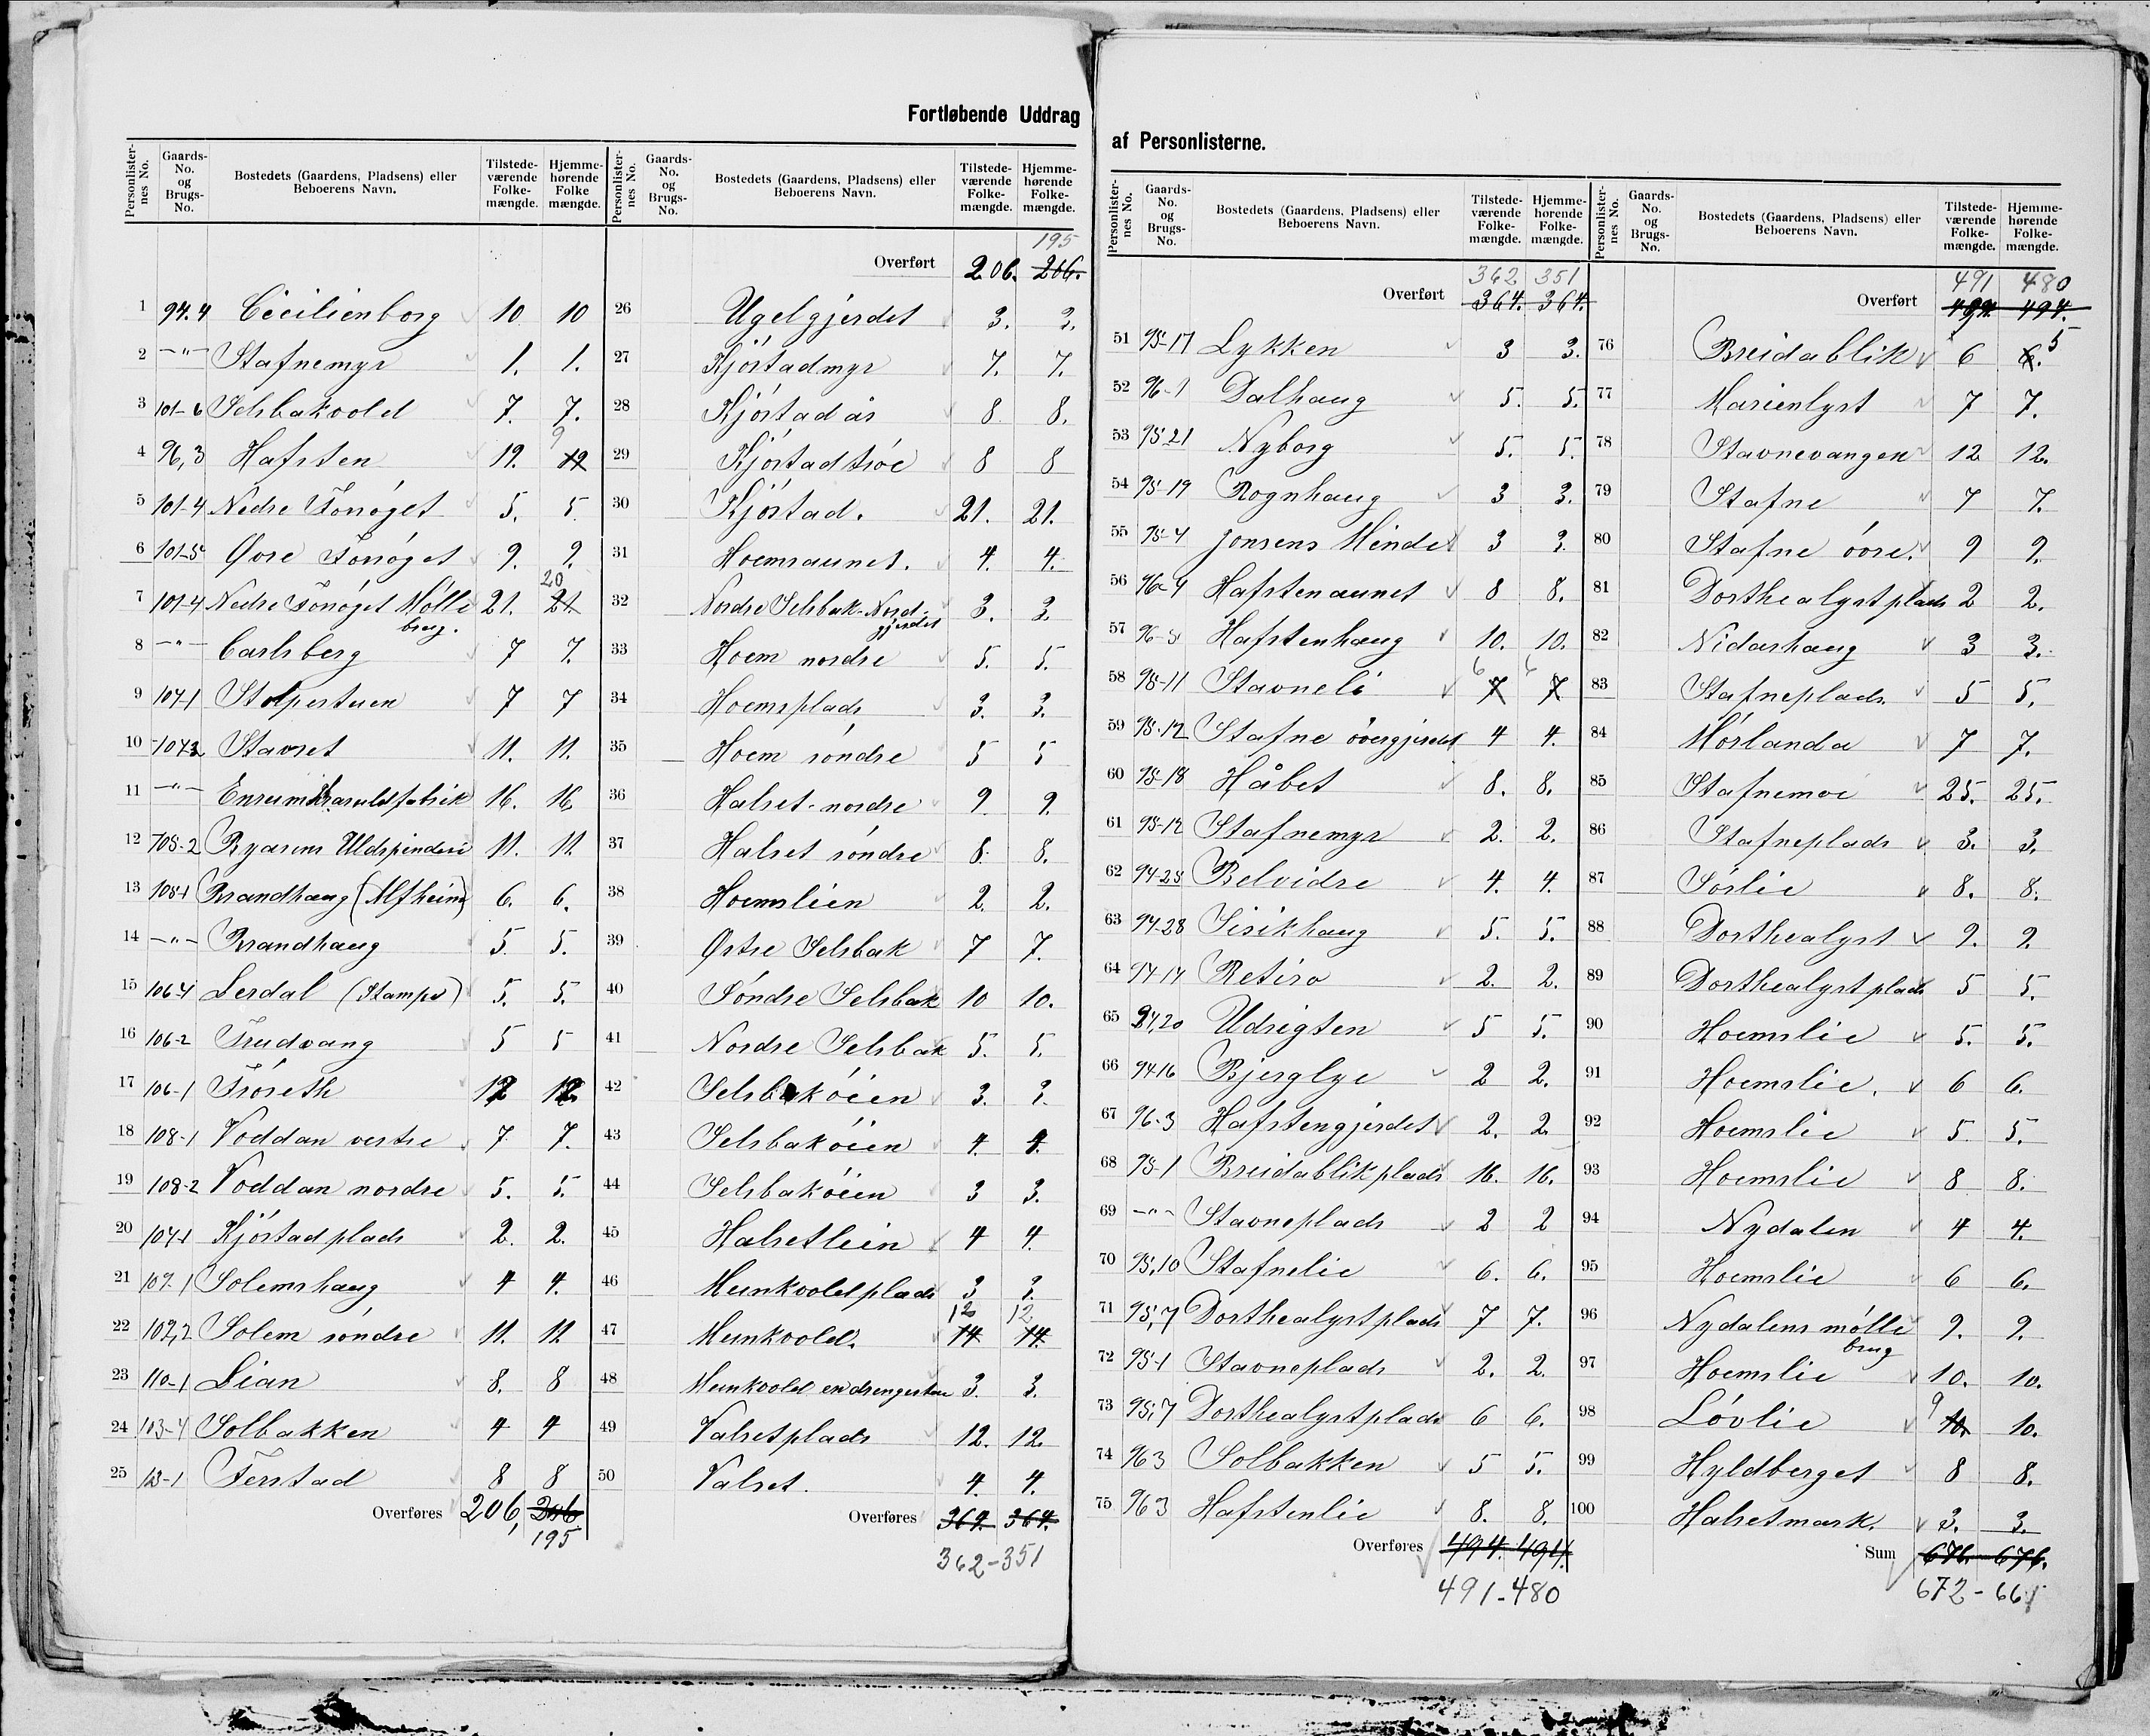 Fortløbende Uddrag
af Personlisterne.
Personlister-nes No. Gaards-No. og Brugs-No. Bostedets (Gaardens, Pladsens) eller Beboerens Navn. Tilstede-værende Folke-mængde. Hjemme-hørende Folke mængde.
1 94.4 Cecilienborg 10 10
2 —"— Stafnemyr 1. 1.
3 101-6 Selsbakvold 7. 7.
4 96,3 Hafsten 19. 19 9
5 101-4 Nedre Fonøget 5. 5
6 101-5 Øvre Fonøget 9. 9.
7 101-4 Nedre Fonøget Mølle brug. 21. 21 20
8 —"— Carlsberg 7 7.
9 107-1 Stolpestuen 7 7
10 107-2 Stavset 11. 11.
11 —"— 16. 16
12 105-2 Ryasens Uldspinderi 11. 11.
13 105-1 Brandhaug (Alfheim) 6. 6.
14 —"— Brandhaug 5. 5.
15 106-4 Lerdal (Stamps) 5. 5.
16 106-2 Trudvang 5 5
17 106-1 Troseth 12 12
18 108-1 Voddan vestre 7. 7.
19 108-2 Voddan nordre 5. 5.
20 104-1 Kjøstad plads 2. 2.
21 109-1 Solemshaug 4 4.
22 109,2 Solem søndre 11. 11.
23 110-1 Lian 8. 8
24 103-4 Solbakken 4 4
25 Ferstad 8 8
Overføres 206, 206
195
Personlister-nes No. Gaards-No. og Brugs-No. Bostedets (Gaardens, Pladsens) eller Beboerens Navn. Tilstede-værende Folke-mængde. Hjemme-hørende Folke-mængde.
195
Overført 206. 206.
26 Ugelgjerdet 3. 3.
27 Kjøstadmyr 7. 7.
28 Kjøstadås 8 8.
29 Kjøstadtrøe 8 8
30 Kjøstad. 21. 21.
31 Hoemsaunet. 4. 4.
32 Nordre Selsbak-Nordgjerdet 3. 3.
33 Hoem nordre 5. 5.
34 Hoemsplads 3. 3.
35 Hoem søndre 5 5
36 Halset-nordre 9. 9.
37 Halset søndre 8. 8.
38 Hoemslien 2. 2.
39 Østre Selsbak 7 7.
40 Søndre Selsbak 10 10.
41 Nordre Selsbak 5. 5.
42 Selsbakøien 3. 3.
43 Selsbakøien 4. 4.
44 Selsbakøien 3 3.
45 Halsetleien 4 4.
46 Munkvoldplads 3 3.
12 12
47 Munkvold. 14 14.
48 Munkvold 3. 3.
49 Valsetplads 12. 12.
50 Valset. 4. 4.
Overføres 364. 364.
362-351
Personlister-nes No. Gaards-No. og Brugs-No. Bostedets (Gaardens, Pladsens) eller Beboerens Navn. Tilstede-værende Folke-mængde. Hjemme-hørende Folke-mængde.
362 351
Overført 364. 364.
51 95-17 Lykken 3 3.
52 96-1 Dalhaug 5. 5.
53 95-21 Nyborg 5. 5.
54 95-19 Rognhaug 3 3.
55 95-4 Jonsens Minde 3 3.
56 96-4 Hafstenaunet 8 8.
57 96-5 Hafstenhaug 10. 10.
58 95-11 Stavneli 7 7 6 6
59 95-12 Stafne øvergjerdet 4 4.
60 95-18 Håbet 8. 8.
61 95-12 Stafnemyr 2. 2.
62 94-25 Belvidre 4. 4.
63 94-28 Sisikhaug 5. 5.
64 94-14 Retiro 2. 2.
65 94,20 Udsigten 5 5.
66 94-16 Bjerglye 2 2.
67 96-3 Hafstengjerdet 2. 2.
68 95-1 Breidablikplads 16. 16.
69 —"— Stavneplads 2 2
70 95,10 Stafnelie 6. 6.
71 95,7 Dorthealystplads 7 7.
72 95-1 Stavneplads 2. 2.
73 95,7 Dorthealystplads 6 6.
74 96 3 Solbakken 5 5.
75 96 3 Hafstenlie 8. 8.
Overføres 494. 494.
491-480
Personlister-nes No. Gaards-No. og Brugs-No. Bostedets (Gaardens, Pladsens) eller Beboerens Navn. Tilstede-værende Folke-mængde. Hjemme-hørende Folke-mængde.
491 480
Overført 494. 494.
76 Breidablik 6 6. 5
77 Marienlyst 7 7.
78 Stavnevangen 12 12.
79 Stafne 7 7.
80 Stafne øvre. 9 9.
81 Dorthealystplads 2 2.
82 Nidarhaug 3 3.
83 Stafneplads. 5 5.
84 Mørlanda 7 7.
85 Stafnemoe 25. 25.
86 Stafneplads 3. 3.
87 Sørlie 8. 8.
88 Dorthealyst 9. 9.
89 Dorthealystplads 5 5.
90 Hoemslie 5. 5.
91 Hoemslie. 6 6.
92 Hoemslie 5 5.
93 Hoemslie 8 8.
94 Nydalen 4 4.
95 Hoemslie 6 6.
96 Nydalens mølle brug 9. 9.
97 Hoemslie 10. 10.
98 Løvlie 9 10. 10.
99 Hyldberget 8 8.
100 Halsetmark. 3. 3.
Sum 676. 676.
672-661